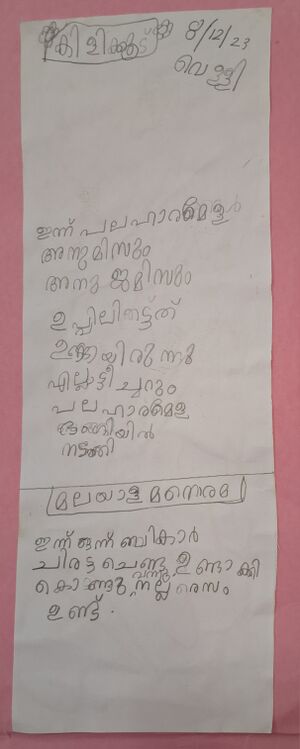 കിളിക്കൂട്
8/12/23
വെള്ളി
ഇന്ന് പലഹാരമേളർ
അനുമിസും
അനു ജമിസും
ഉപ്പിലിട്ടത്
ഉണ്ടായിരുന്നു
എല്ലാട്ടീച്ചറും
പലഹാരമേള
ഭംങ്ങിയിൽ
നടത്തി
മലയാള മനെരമ
ഇന്ന് ഒന്ന് ബികാർ
ചിരട്ട ചെണ്ടു ഉണ്ടാക്കി
നല്ല രെസം
ഉണ്ട്.